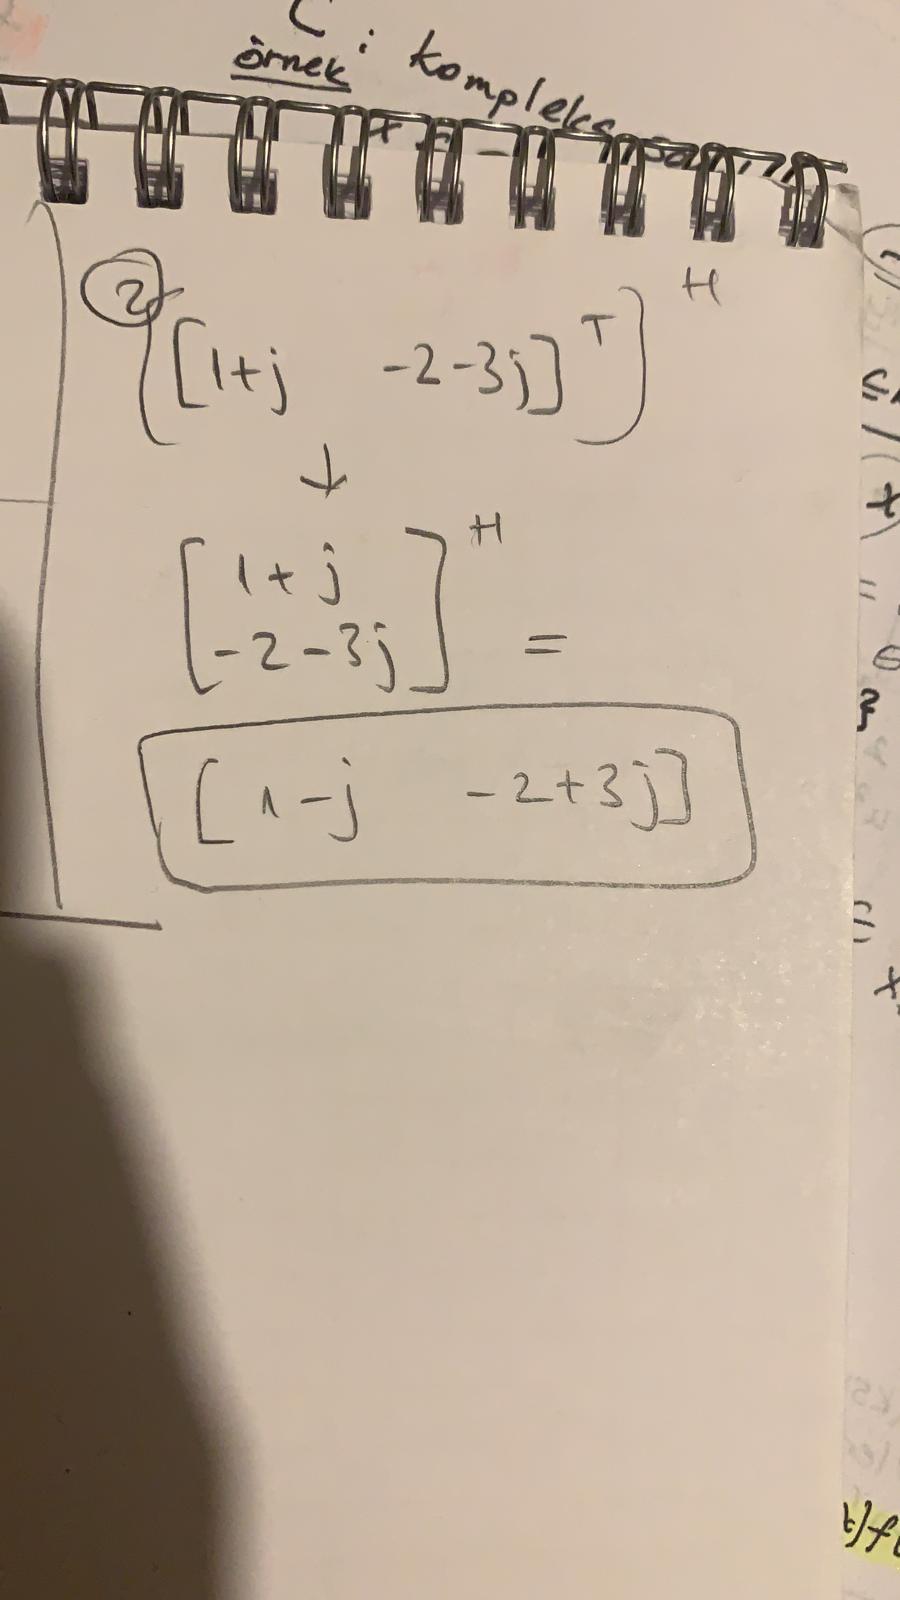 C : kompleks
örnek
2) ([1+j -2-3j]ᵀ)ᴴ
↓
[1+j
-2-3j]ᴴ =
[1-j -2+3j]